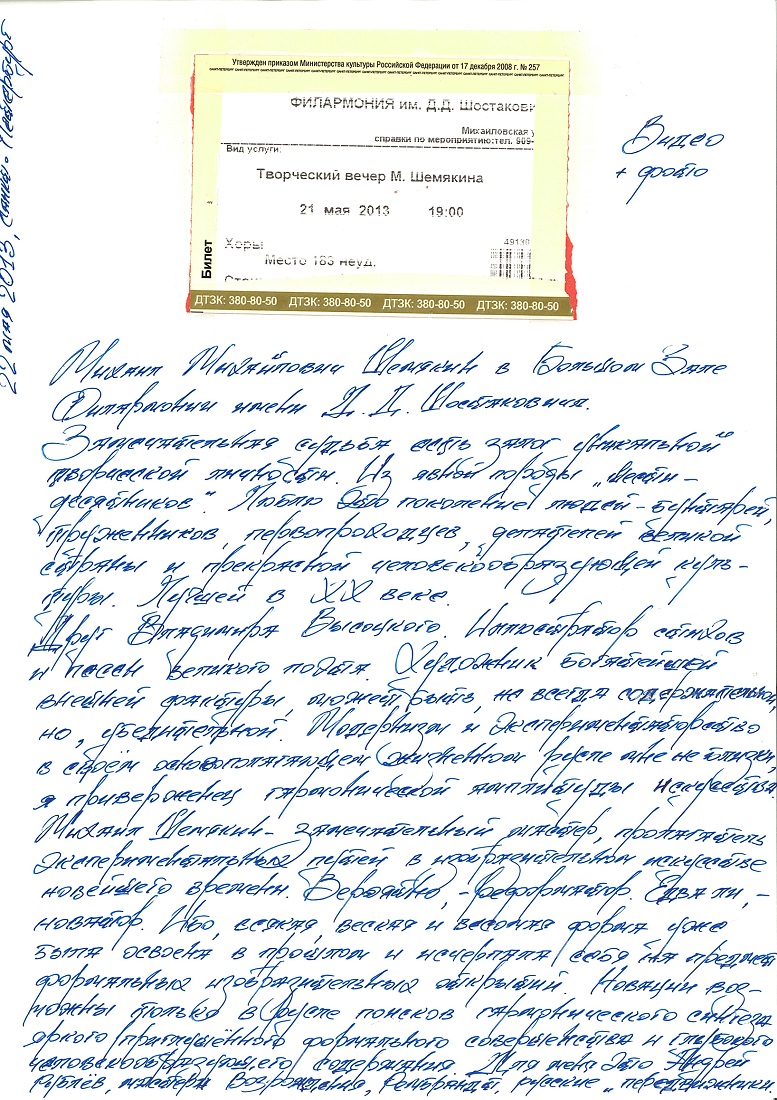 22 мая 2013, Санкт-Петербург
Утвержден приказом Министерства культуры Российской Федерации от 17 декабря 2008 г. № 257
ФИЛАРМОНИЯ им. Д.Д. Шостакови
Михайловская у
справки по мероприятию:тел. 909-
Вид услуги:
Творческий вечер М. Шемякина
21 мая 2013 19:00
Хоры
49130
Место 183 неуд.
Билет
ДТЗК: 380-80-50 ДТЗК: 380-80-50 ДТЗК: 380-80-50 ДТЗК: 380-80-50
Видео
+ фото
Михаил Михайлович Шемякин в Большом Зале
Филармонии имени Д. Д. Шостаковича.
Замечательная судьба есть залог уникальной
творческой личности. Из явной породы „шести-
десятников". Люблю это поколение людей-бунтарей,
тружеников, первопроходцев, деятелей великой
страны и прекрасной человекообразующей куль-
туры. Лучшей в XX веке.
Друг Владимира Высоцкого. Иллюстратор стихов
и песен великого поэта. Художник богатейшей
внешней фактуры, может быть, не всегда содержательной,
но, убедительной. Модернизм и экспериментаторство
в своём основополагающем жизненном русле мне не близки,
я приверженец гармонической амплитуды искусства.
Михаил Шемякин - замечательный мастер, пролагатель
экспериментальных путей в изобразительном искусстве
новейшего времени. Вероятно, - реформатор. Едва ли, -
новатор. Ибо, всякая, веская и весомая форма уже
была освоена в прошлом и исчерпала себя на предмет
формальных изобразительных открытий. Новации воз-
можны только в русле поисков гармонического синтеза
яркого формального совершенства и глубокого
человекообразующего содержания. Для меня это Андрей
Рублёв, мастера Возрождения, Рембрандт, русские „передвижники